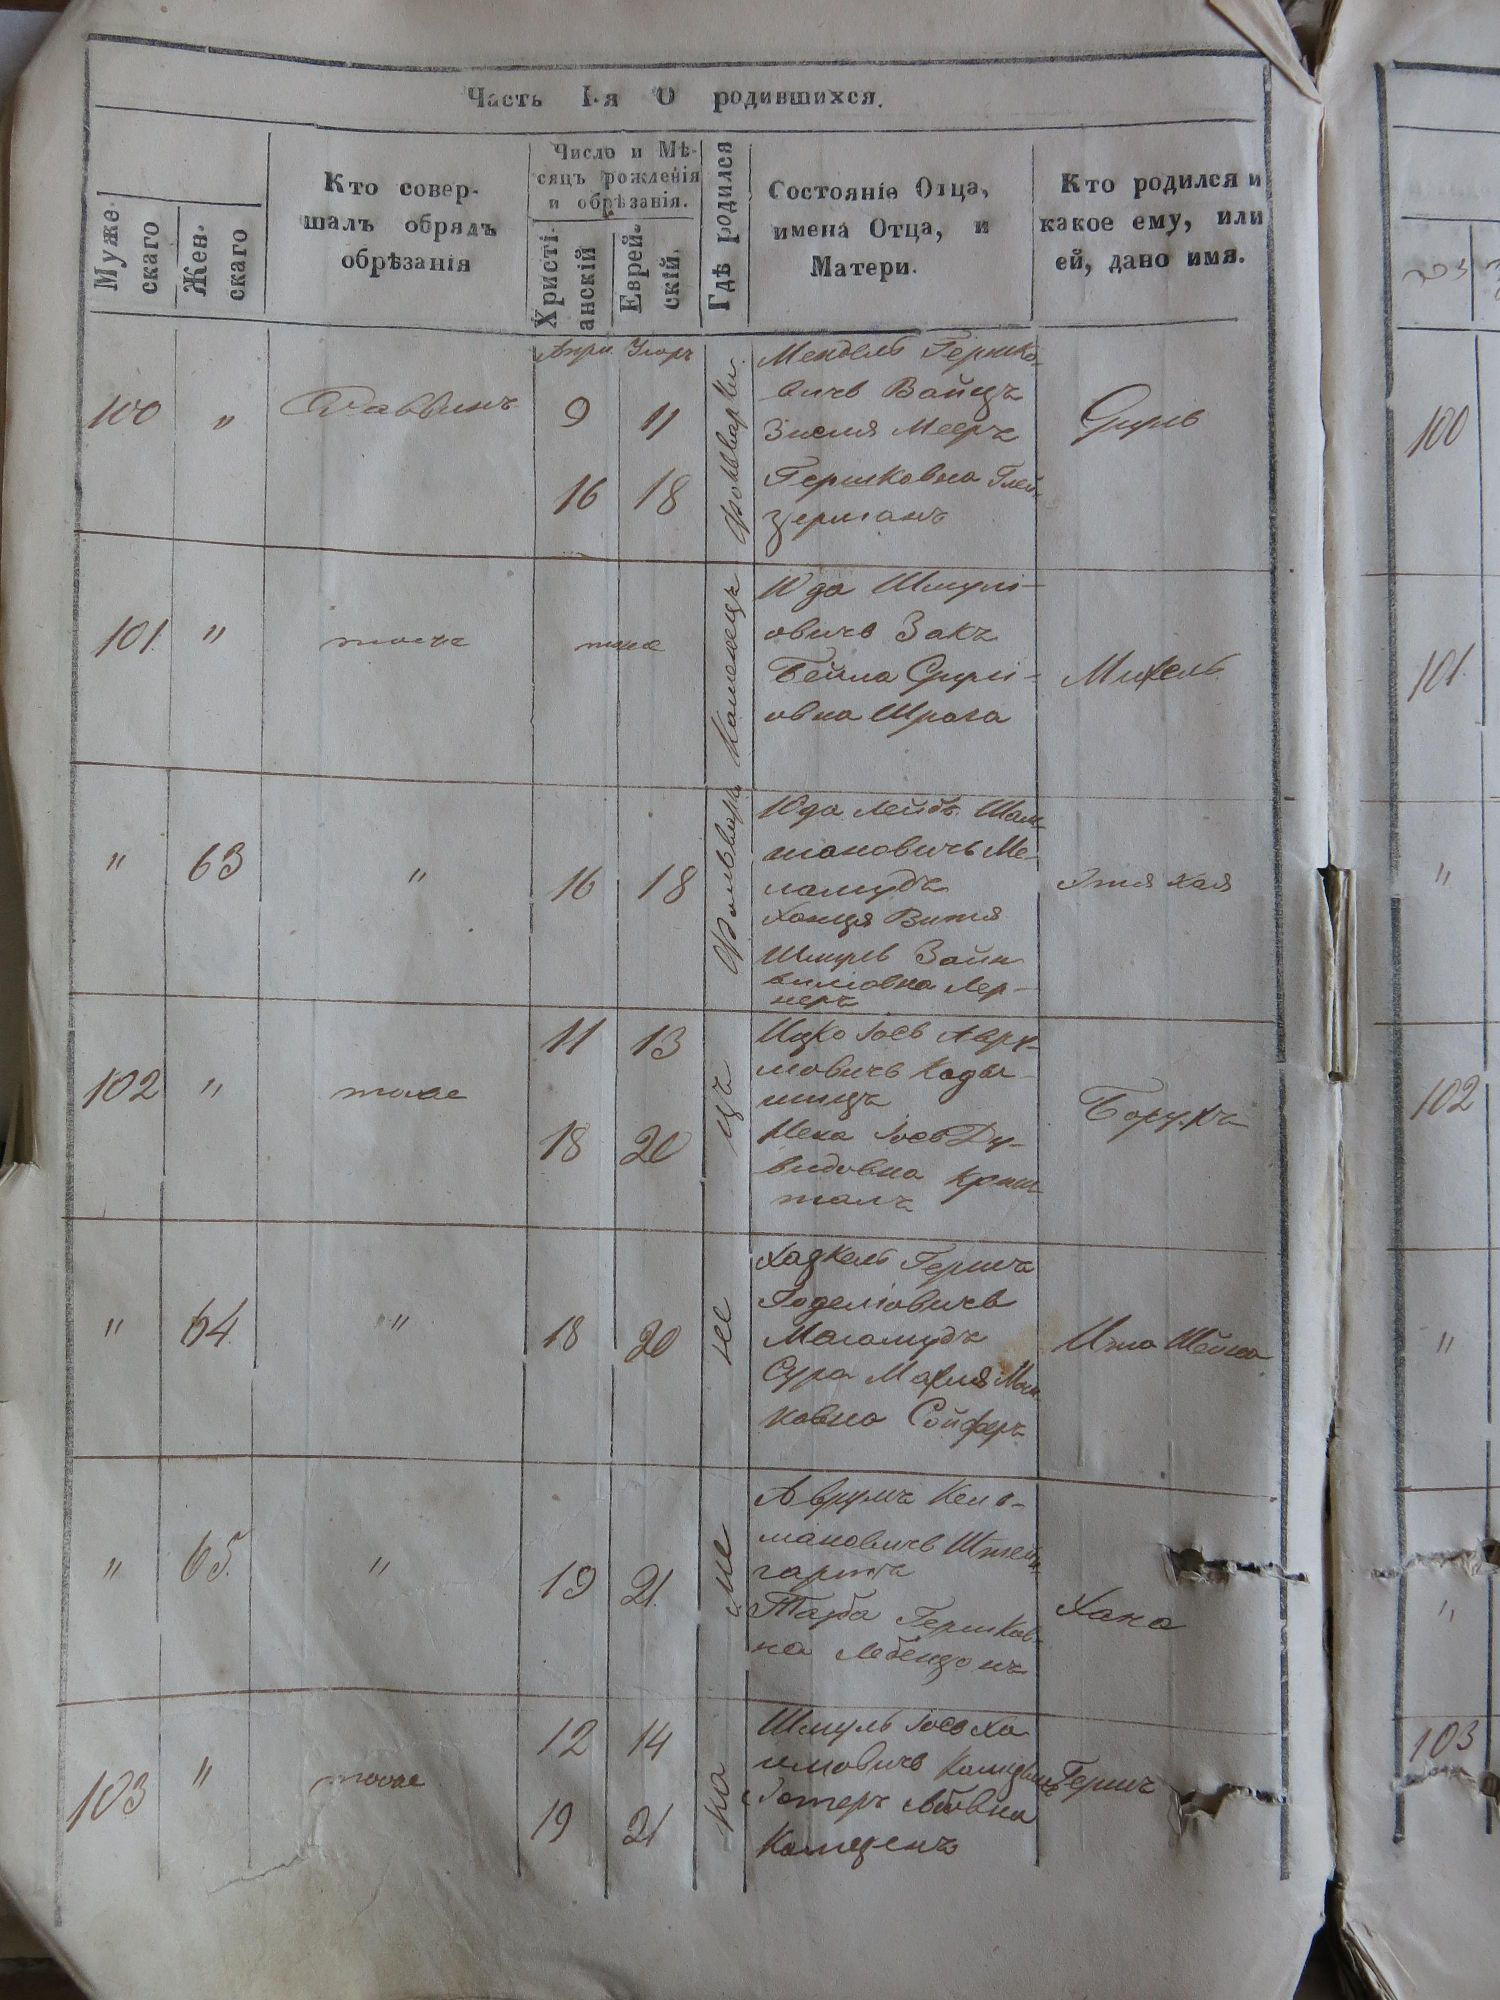 Часть I-я О родившихся.
Муже-
скаго
Жен-
скаго
Кто совер-
шалъ обрядъ
обрѣзанія
Число и Мѣ-
сяцъ рожденія
и обрѣзанія.
Христі-
анскій
Еврей-
скій.
Гдѣ родился
Состояніе Отца,
имена Отца, и
Матери.
Кто родился и
какое ему, или
ей, дано имя.
100 „ Раввинъ
Апри. Іюръ
9 11
16 18
Фольварки
Мендель Гершко-
вичъ Вайцъ
Зисля Мееръ
Гершковна Глей-
зерманъ
Сруль
100
101 „ тоже
тоже
Каменецъ
Юда Шмулі-
овичъ Закъ
Бейла Срулі-
овна Шрага
Михель
101
„ 63 „ 16 18
Фольварки
Юда Лейбъ Шам-
шановичъ Ме-
ламудъ
Ханця Витя
Шмуль Зайн
виловна Лер-
неръ
Этя Хая
„
102 „ тоже
11 13
18 20
Ицко Іосъ Авру-
мовичъ
Ду-
видовна Криш
талъ
Борухъ
102
„ 64 „ 18 20
Каменецъ
Хацкель Гершъ
Годеліовичъ
Маламудъ
Сура Маріля
ковна Сойферъ
Ита Шейва
„
„ 65 „ 19 21
Аврумъ Кель-
мановичъ Штейн-
гартъ
Тауба Гершков-
на Лебензонъ
Хана
„
103 „ тоже
12 14
19 21
Шмуль Іосъ Ха
имовичъ
Эстеръ Лбовна
Кацценъ
Гершъ
103